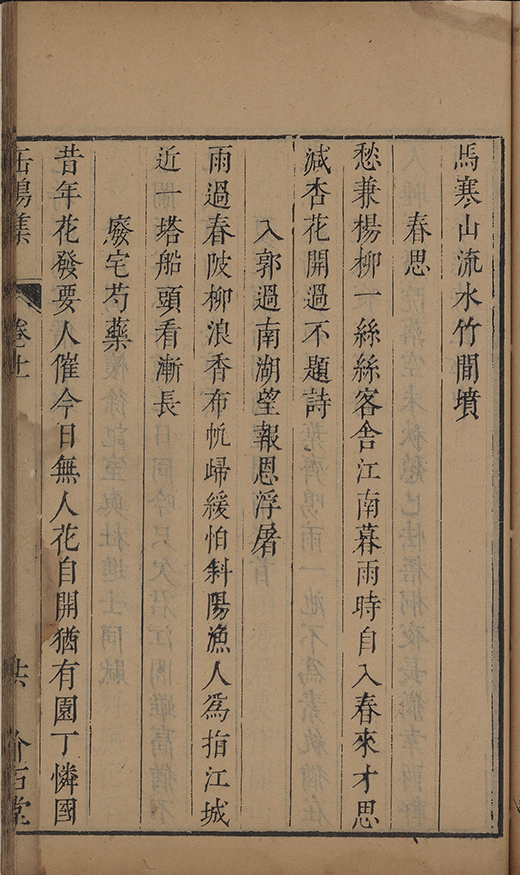 馬寒山流水竹間墳
春思
愁兼楊柳一絲絲客舎江南暮雨時自入春來才思
減杏花開過不題詩
入郭過南湖望報恩浮屠
雨過春陂柳浪香布帆歸緩怕斜陽漁人爲指江城
近一塔船頭看漸長
廢宅芍藥
昔年花發要人催今日無人花自開猶有園丁憐國
缶鳴集
卷十
介石堂